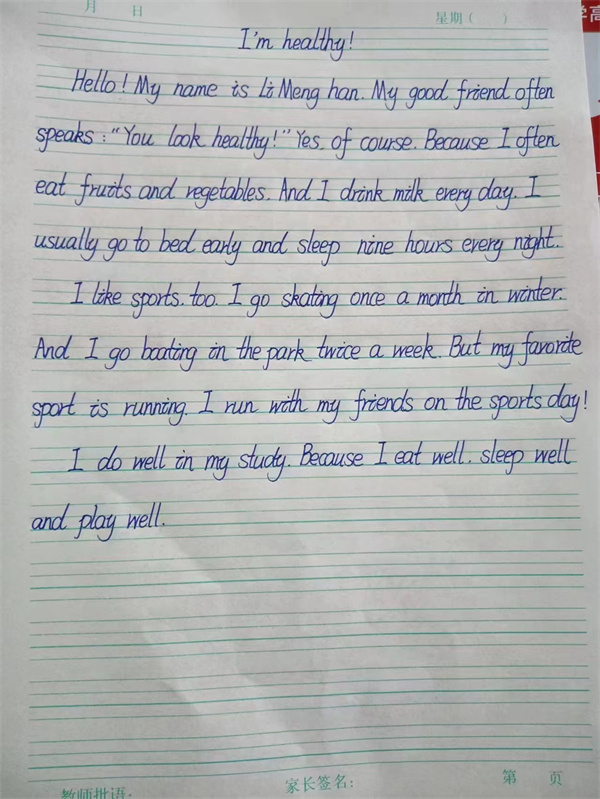 月 日 星期（ ）
I'm healthy!
Hello! My name is Li Meng han. My good friend often
speaks: "You look healthy!" Yes, of course. Because I often
eat fruits and vegetables. And I drink milk every day. I
usually go to bed early and sleep nine hours every night.
I like sports, too. I go skating once a month in winter.
And I go boating in the park twice a week. But my favorite
sport is running. I run with my friends on the sports day!
I do well in my study. Because I eat well, sleep well
and play well.
教师批语: 家长签名: 第 页